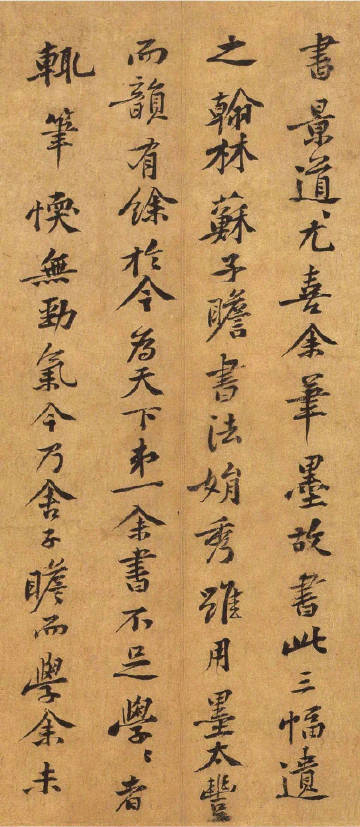 書景道〻尤喜余筆墨故書此三幅遺
之翰林蘇子瞻書法娟秀雖用墨太豐
而韻有餘於今為天下弟一余書不足學〻者
輒筆愞無勁氣今乃舍子瞻而學余未